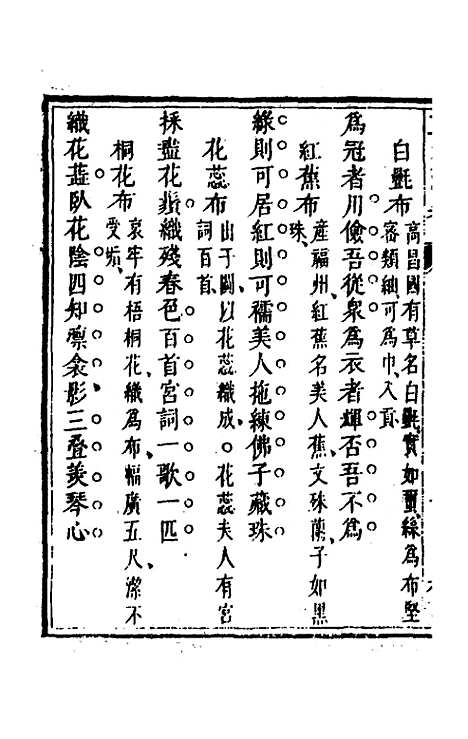 白㲲布 高昌國有草名白㲲實如繭絲爲布堅
密類紬可爲巾入貢
爲冠者川儉吾從衆爲衣者輝否吾不爲
紅蕉布 產福州紅蕉名美人蕉文殊蘭子如黑
珠
綠則可居紅則可襦美人拖練佛子藏珠
花蕊布 出于闐以花蕊織成。花蕊夫人有宮
詞百首
採盡花鬚織殘春色百首宮詞一歌一匹
桐花布 哀牢有梧桐花織爲布幅廣五尺潔不
受垢
織花葢臥花陰四知禦衾影三疊美琴心